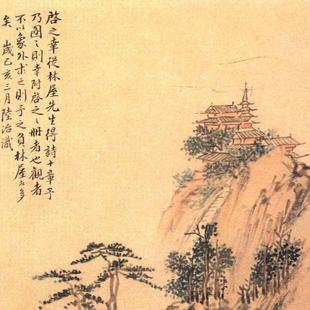 啓之幸從林屋先生得詩十章予
乃圖之則幸附啓之之冊者也觀者
不以象外求之則予之負林屋者多
矣 歲己亥三月陸治識